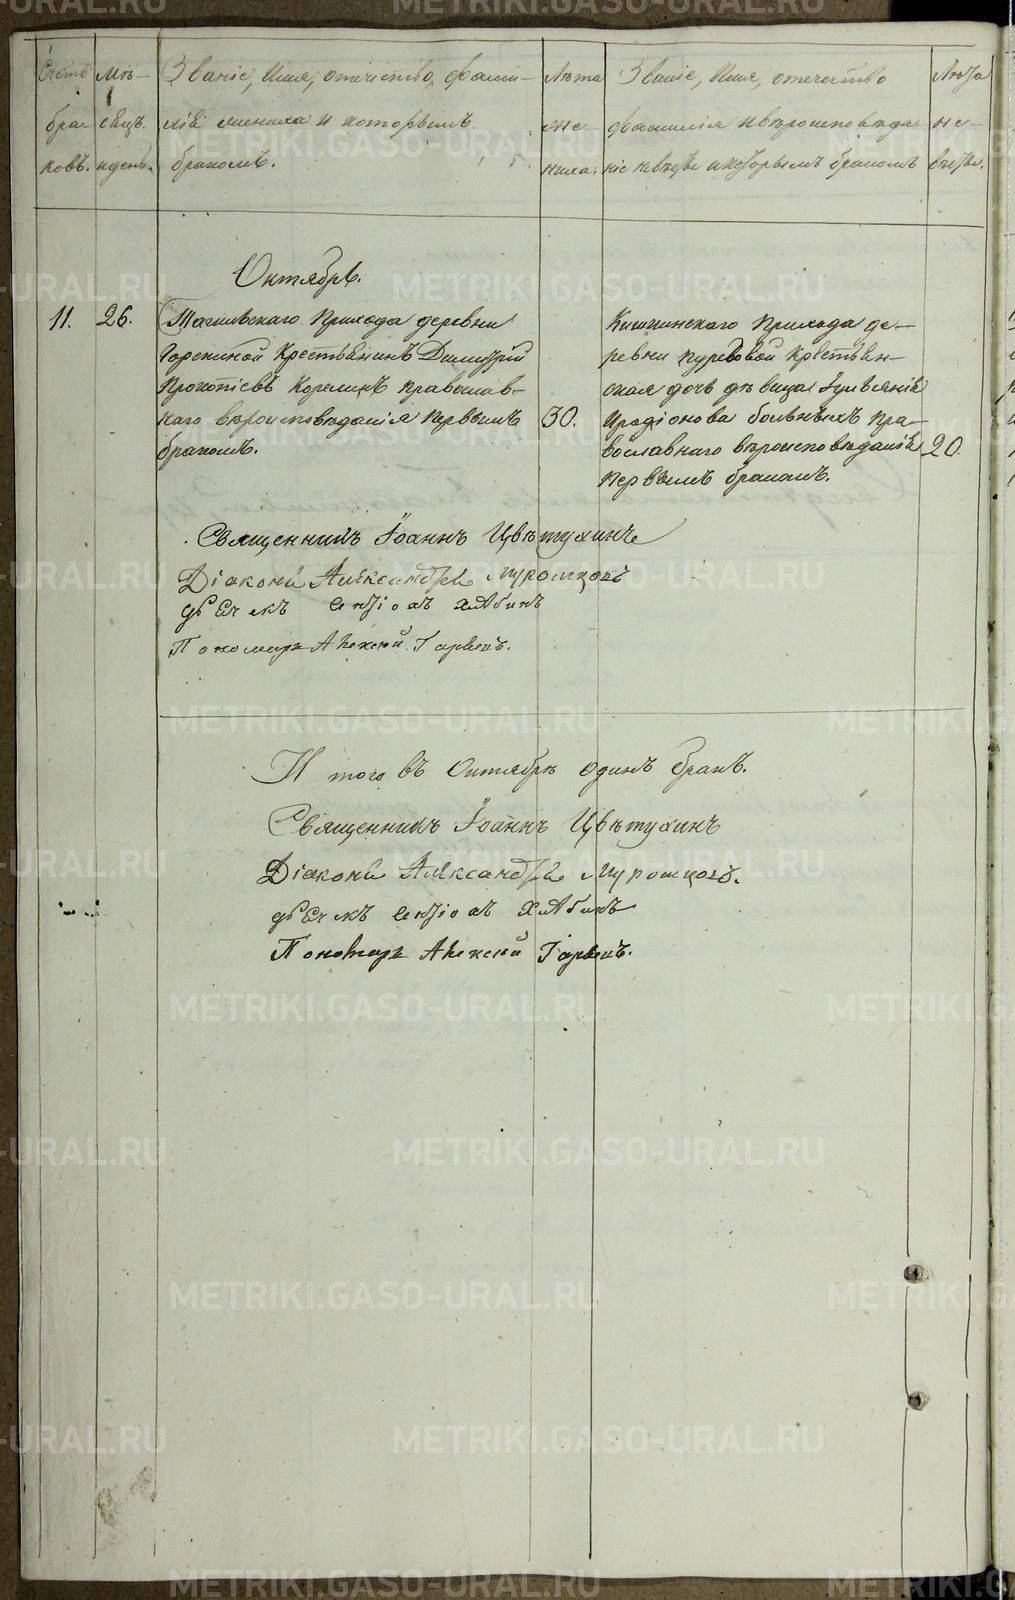 Счетъ бра- ковъ.
Мѣ- сяцъ. и день.
Званіе, Имя, отчество, фами-
лія жениха и которымъ
бракомъ.
Лѣта же- ниха.
Званіе, Имя, отечество
фамилія и вѣроисповѣда
ніе невѣсты и которымъ бракомъ
Лѣта не- вѣсты.
Октябрь.
11. 26.
Тагильскаго Прихода деревни
Горекиной Крестьянинъ Димитрій
Прокопіевъ Корелинъ православ-
наго вѣроисповѣданія первымъ
бракомъ.
30.
Кишкинскаго Прихода де-
ревни Пуреговой Крестьян-
ская дочь дѣвица Гуліянія
Иродіонова больныхъ Пра-
вославнаго вѣроисповѣданія
первымъ бракомъ.
20.
Священникъ Іоаннъ Цвѣтухинъ
Діаконъ Александръ Муромцовъ
дьячекъ Хлабинъ
Пономарь Алексѣй
И того въ Октябрѣ одинъ бракъ.
Священникъ Іоаннъ Цвѣтухинъ
Діаконъ Александръ Муромцовъ.
дьячекъ Хлабинъ
Пономарь Алексѣй
METRIKI.GASO-URAL.RU